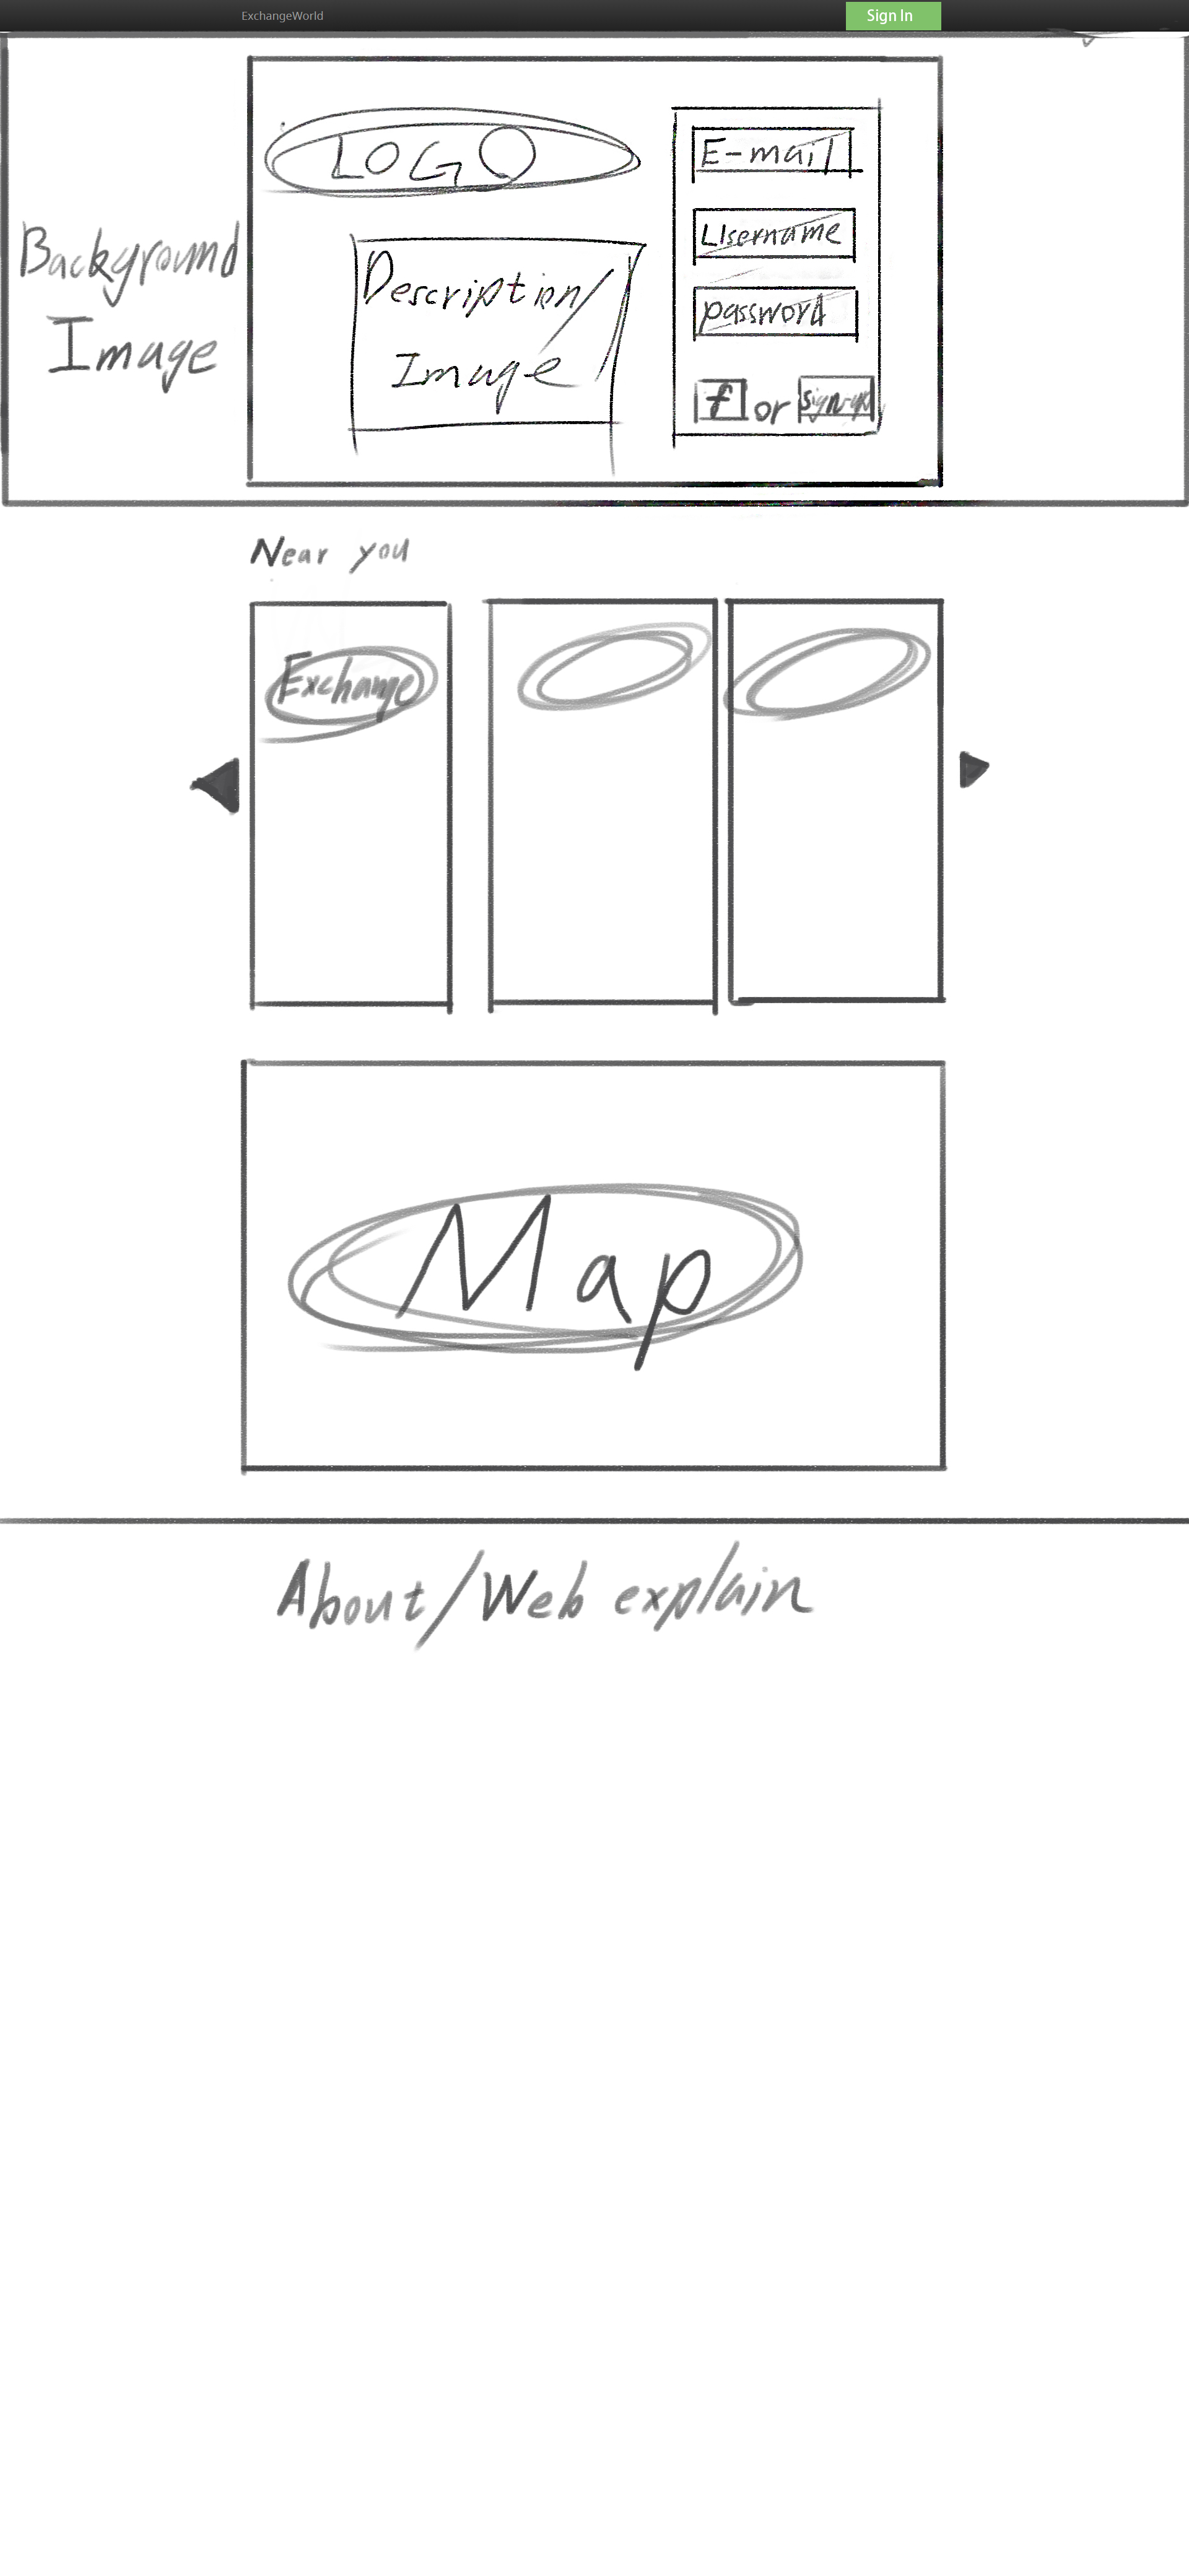 ExchangeWorld
Sign In
LOGO
Background
Image
Description/
Image
E-mail
Username
password
f or sign-up
Near you
Exchange
Map
About/Web explain